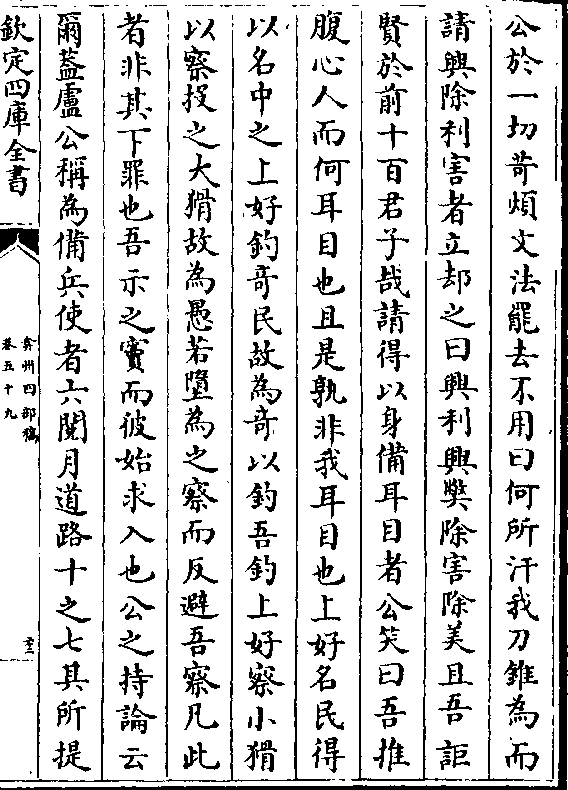 公於一切苛煩文法罷去不用曰何所汙我刀錐為而
請興除利害者立却之曰興利興獘除害除美且吾詎
賢於前十百君子哉請得以身備耳目者公笑曰吾推
腹心人而何耳目也且是孰非我耳目也上好名民得
以名中之上好釣竒民故為竒以釣吾釣上好察小猾
以察投之大猾故為愚若墮為之察而反避吾察凡此
者非其下罪也吾示之竇而彼始求入也公之持論云
爾葢盧公稱為備兵使者六閱月道路十之七其所提
欽定四庫全書
弇州四部稿
卷五十九